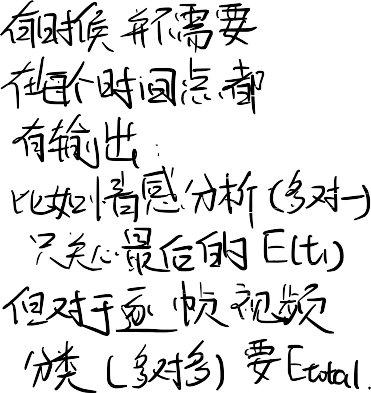 有时候并不需要
在每个时间点都
有输出.
比如情感分析(多对一)
只关心最后的E(t₁)
但对于逐帧视频
分类(多对多)要Etotal.